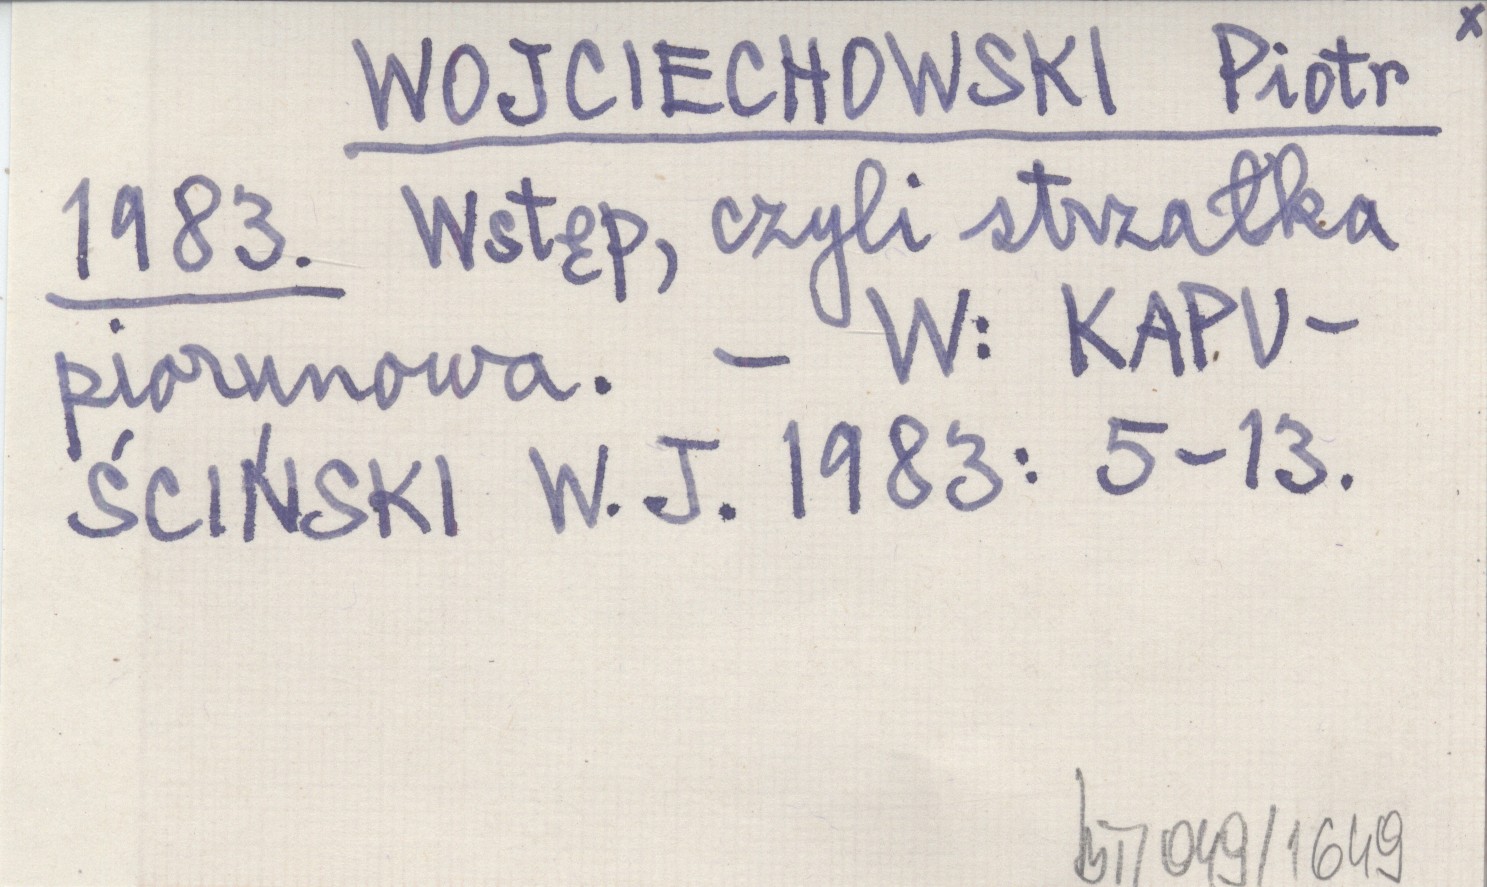 x
WOJCIECHOWSKI Piotr
1983. Wstęp, czyli strzałka
piorunowa. – W: KAPU-
ŚCIŃSKI W. J. 1983: 5-13.
049/1649